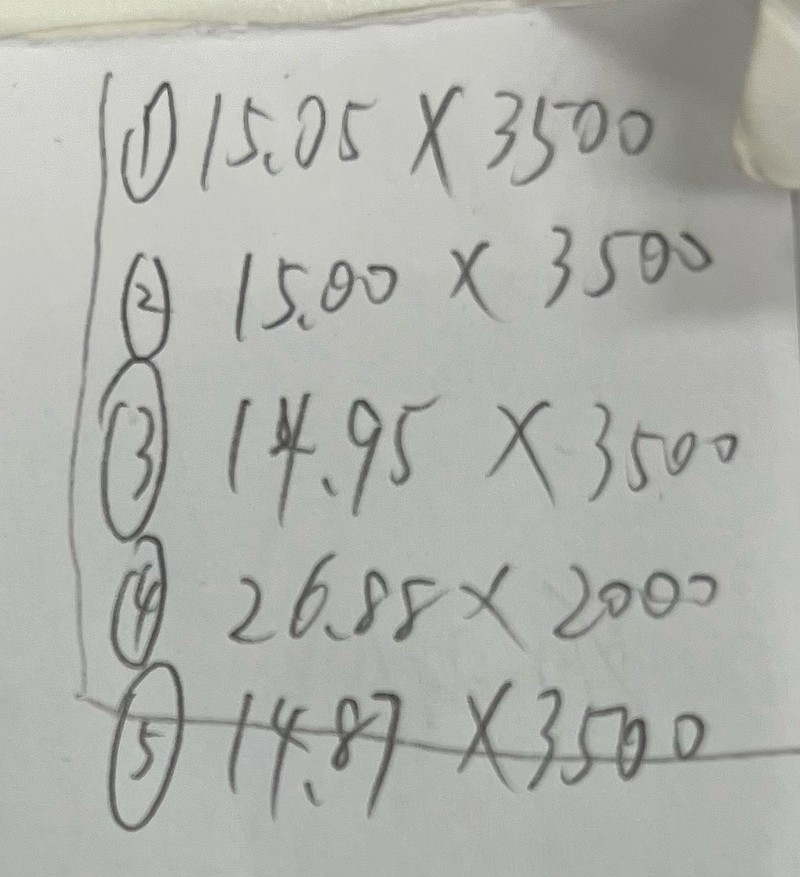 ① 15.05 X 3500
② 15.00 X 3500
③ 14.95 X 3500
④ 26.88 X 2000
⑤ 14.87 X 3500